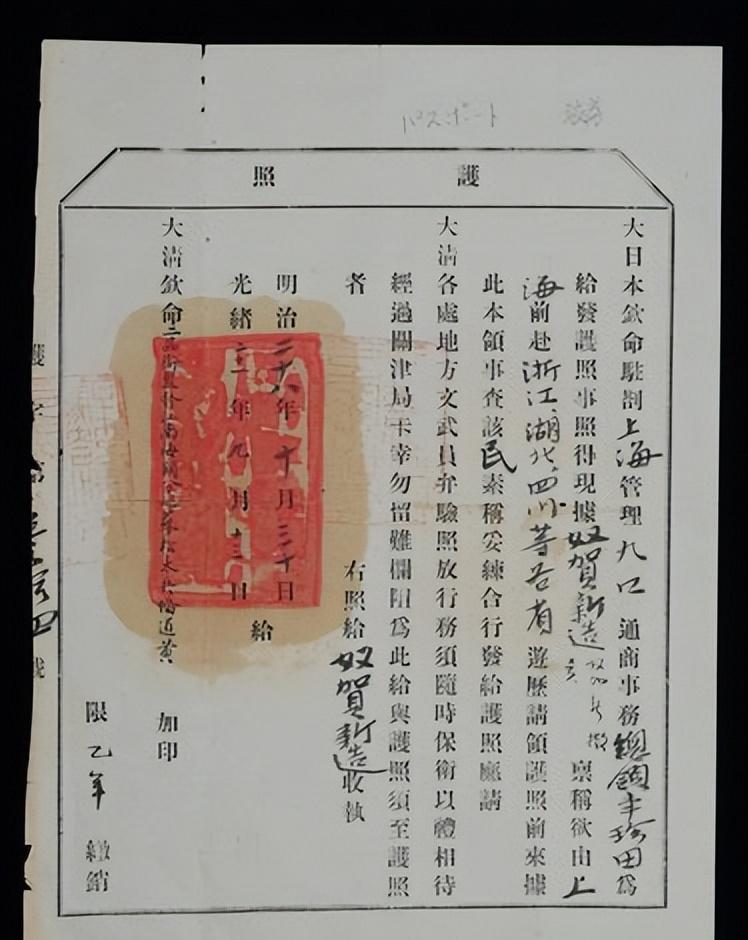 パスポート
護照
大日本欽命駐劄上海管理九口通商事務總領事珍田爲
給發護照事照得現據奴賀新造稟稱欲由上
海前赴浙江、湖北、四川等各省遊歷請領護照前來據
此本領事查該民素稱妥練合行發給護照應請
大淸各處地方文武員弁驗照放行務須隨時保衛以禮相待
經過關津局卡幸勿留難攔阻爲此給與護照須至護照
者
右照給奴賀新造收執
明治二十八年十月三十日
光緖二十一年九月十三日
給
大淸欽命二品
加印
限乙年繳銷
護字第
號